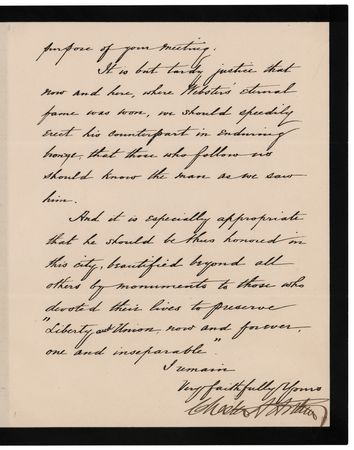 purpose of your meeting.
It is but tardy justice that
now and here, where Webster's eternal
fame was won, we should speedily
erect his counterpart in enduring
bronze, that those who follow us
should know the man as we saw
him.
And it is especially appropriate
that he should be thus honored in
this city, beautified beyond all
others by monuments to those who
devoted their lives to preserve
"Liberty and Union, now and forever,
one and inseparable"
I remain
Very faithfully Yours
Chester A Arthur